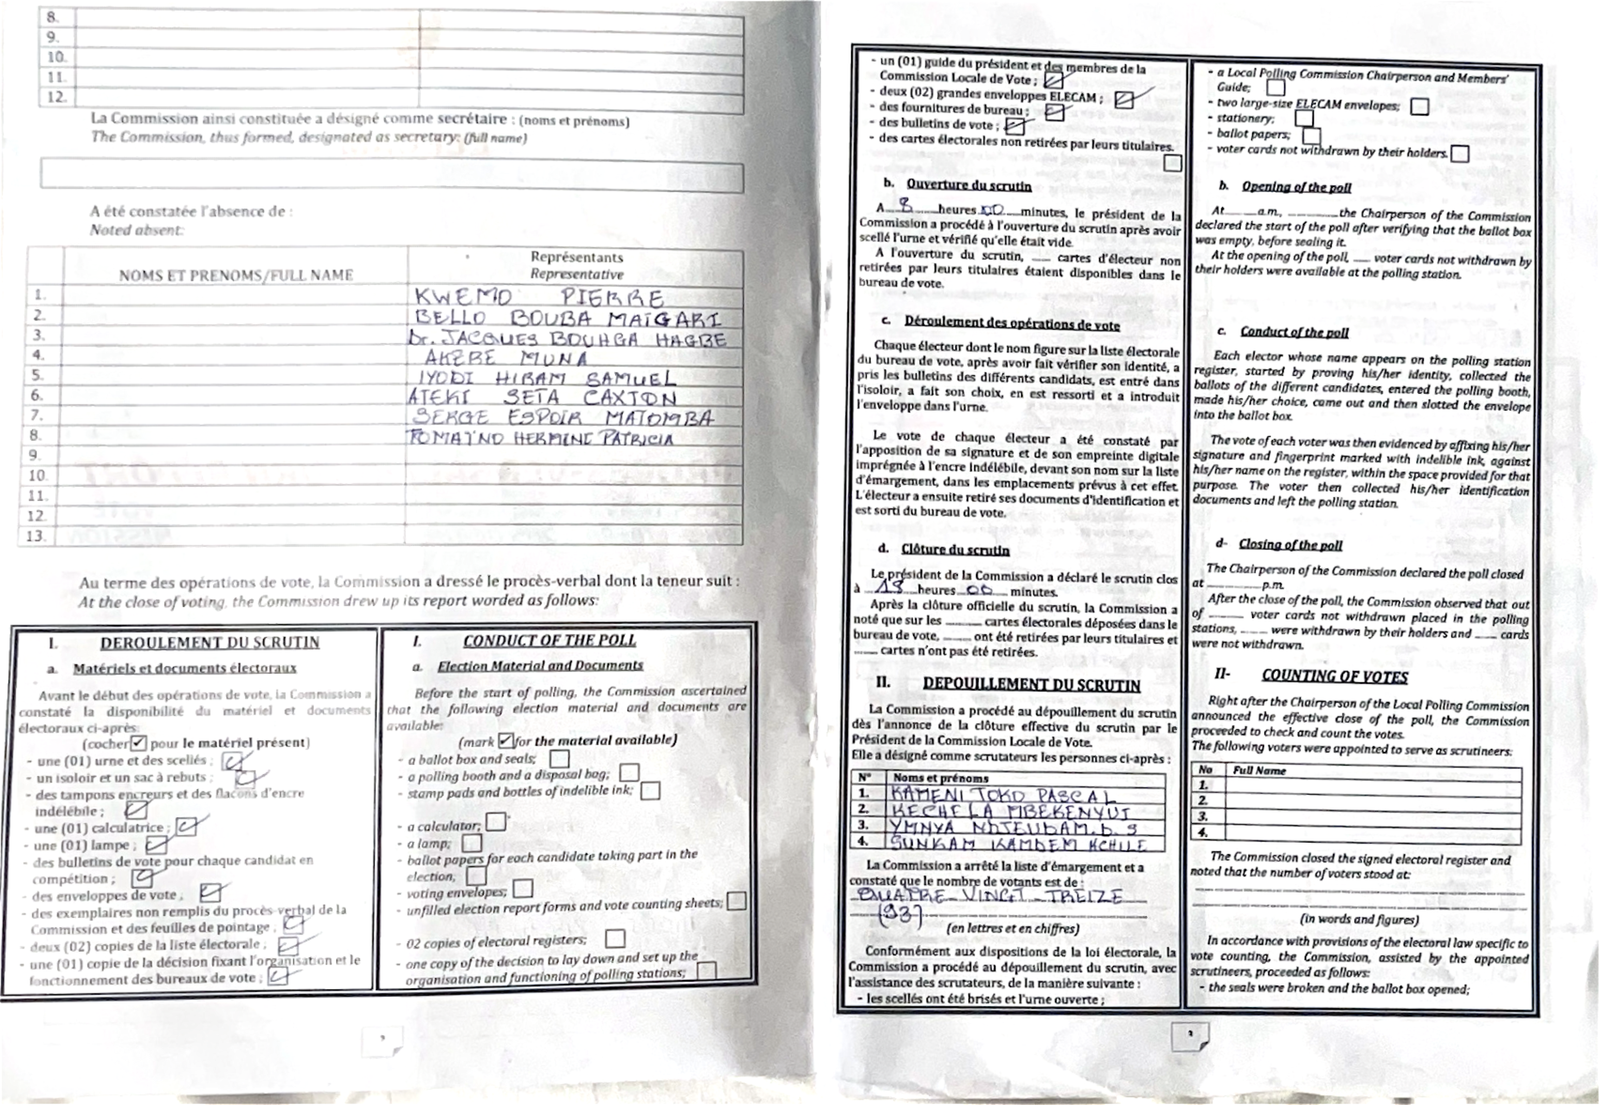 8.
9.
10.
11.
12.
La Commission ainsi constituée a désigné comme secrétaire : (noms et prénoms)
The Commission, thus formed, designated as secretary: (full name)
A été constatée l'absence de :
Noted absent:
NOMS ET PRENOMS/FULL NAME
Représentants
Representative
1. KWEMO PIERRE
2. BELLO BOUBA MAÏGARI
3. Dr. JACQUES BOUHGA HAGBE
4. AKERE MUNA
5. IYODI HIRAM SAMUEL
6. ATEKI SETA CAXTON
7. SERGE ESPOIR MATOMBA
8. TOMAÏNO HERMINE PATRICIA
9.
10.
11.
12.
13.
Au terme des opérations de vote, la Commission a dressé le procès-verbal dont la teneur suit :
At the close of voting, the Commission drew up its report worded as follows:
I. DEROULEMENT DU SCRUTIN
a. Matériels et documents électoraux
Avant le début des opérations de vote, la Commission a
constaté la disponibilité du matériel et documents
électoraux ci-après:
(cocher ✓ pour le matériel présent)
- une (01) urne et des scellés ;
- un isoloir et un sac à rebuts ;
- des tampons encreurs et des flacons d'encre
indélébile ;
- une (01) calculatrice ;
- une (01) lampe ;
- des bulletins de vote pour chaque candidat en
compétition ;
- des enveloppes de vote ;
- des exemplaires non remplis du procès-verbal de la
Commission et des feuilles de pointage ;
- deux (02) copies de la liste électorale ;
- une (01) copie de la décision fixant l'organisation et le
fonctionnement des bureaux de vote ;
I. CONDUCT OF THE POLL
a. Election Material and Documents
Before the start of polling, the Commission ascertained
that the following election material and documents are
available:
(mark ✓ for the material available)
- a ballot box and seals;
- a polling booth and a disposal bag;
- stamp pads and bottles of indelible ink;
- a calculator;
- a lamp;
- ballot papers for each candidate taking part in the
election;
- voting envelopes;
- unfilled election report forms and vote counting sheets;
- 02 copies of electoral registers;
- one copy of the decision to lay down and set up the
organisation and functioning of polling stations;
- un (01) guide du président et des membres de la
Commission Locale de Vote ;
- deux (02) grandes enveloppes ELECAM ;
- des fournitures de bureau ;
- des bulletins de vote ;
- des cartes électorales non retirées par leurs titulaires.
b. Ouverture du scrutin
A 8 heures 00 minutes, le président de la
Commission a procédé à l'ouverture du scrutin après avoir
scellé l'urne et vérifié qu'elle était vide.
A l'ouverture du scrutin, ___ cartes d'électeur non
retirées par leurs titulaires étaient disponibles dans le
bureau de vote.
c. Déroulement des opérations de vote
Chaque électeur dont le nom figure sur la liste électorale
du bureau de vote, après avoir fait vérifier son identité, a
pris les bulletins des différents candidats, est entré dans
l'isoloir, a fait son choix, en est ressorti et a introduit
l'enveloppe dans l'urne.
Le vote de chaque électeur a été constaté par
l'apposition de sa signature et de son empreinte digitale
imprégnée à l'encre indélébile, devant son nom sur la liste
d'émargement, dans les emplacements prévus à cet effet.
L'électeur a ensuite retiré ses documents d'identification et
est sorti du bureau de vote.
d. Clôture du scrutin
Le président de la Commission a déclaré le scrutin clos
à 18 heures 00 minutes.
Après la clôture officielle du scrutin, la Commission a
noté que sur les ___ cartes électorales déposées dans le
bureau de vote, ___ ont été retirées par leurs titulaires et
___ cartes n'ont pas été retirées.
II. DEPOUILLEMENT DU SCRUTIN
La Commission a procédé au dépouillement du scrutin
dès l'annonce de la clôture effective du scrutin par le
Président de la Commission Locale de Vote.
Elle a désigné comme scrutateurs les personnes ci-après :
N° Noms et prénoms
1. KAMENI TOKO PASCAL
2. KECHELA MBEKENYUI
3. YMNYA NDJEUDAM. D. S
4. SUNKAM KAMDEM ACHILE
La Commission a arrêté la liste d'émargement et a
constaté que le nombre de votants est de :
QUATRE VINGT TREIZE
(93)
(en lettres et en chiffres)
Conformément aux dispositions de la loi électorale, la
Commission a procédé au dépouillement du scrutin, avec
l'assistance des scrutateurs, de la manière suivante :
- les scellés ont été brisés et l'urne ouverte ;
- a Local Polling Commission Chairperson and Members'
Guide;
- two large-size ELECAM envelopes;
- stationery;
- ballot papers;
- voter cards not withdrawn by their holders.
b. Opening of the poll
At ___ a.m., ___ the Chairperson of the Commission
declared the start of the poll after verifying that the ballot box
was empty, before sealing it.
At the opening of the poll, ___ voter cards not withdrawn by
their holders were available at the polling station.
c. Conduct of the poll
Each elector whose name appears on the polling station
register, started by proving his/her identity, collected the
ballots of the different candidates, entered the polling booth,
made his/her choice, came out and then slotted the envelope
into the ballot box.
The vote of each voter was then evidenced by affixing his/her
signature and fingerprint marked with indelible ink, against
his/her name on the register, within the space provided for that
purpose. The voter then collected his/her identification
documents and left the polling station.
d- Closing of the poll
The Chairperson of the Commission declared the poll closed
at ___ p.m.
After the close of the poll, the Commission observed that out
of ___ voter cards not withdrawn placed in the polling
stations, ___ were withdrawn by their holders and ___ cards
were not withdrawn.
II- COUNTING OF VOTES
Right after the Chairperson of the Local Polling Commission
announced the effective close of the poll, the Commission
proceeded to check and count the votes.
The following voters were appointed to serve as scrutineers:
No Full Name
1.
2.
3.
4.
The Commission closed the signed electoral register and
noted that the number of voters stood at:
(in words and figures)
In accordance with provisions of the electoral law specific to
vote counting, the Commission, assisted by the appointed
scrutineers, proceeded as follows:
- the seals were broken and the ballot box opened;
3